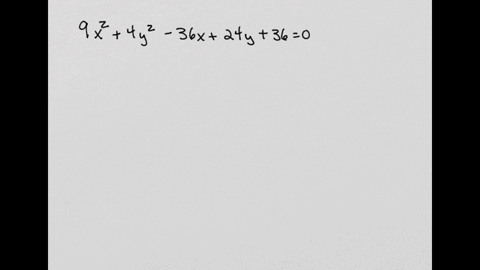 9x² + 4y² - 36x + 24y + 36 = 0